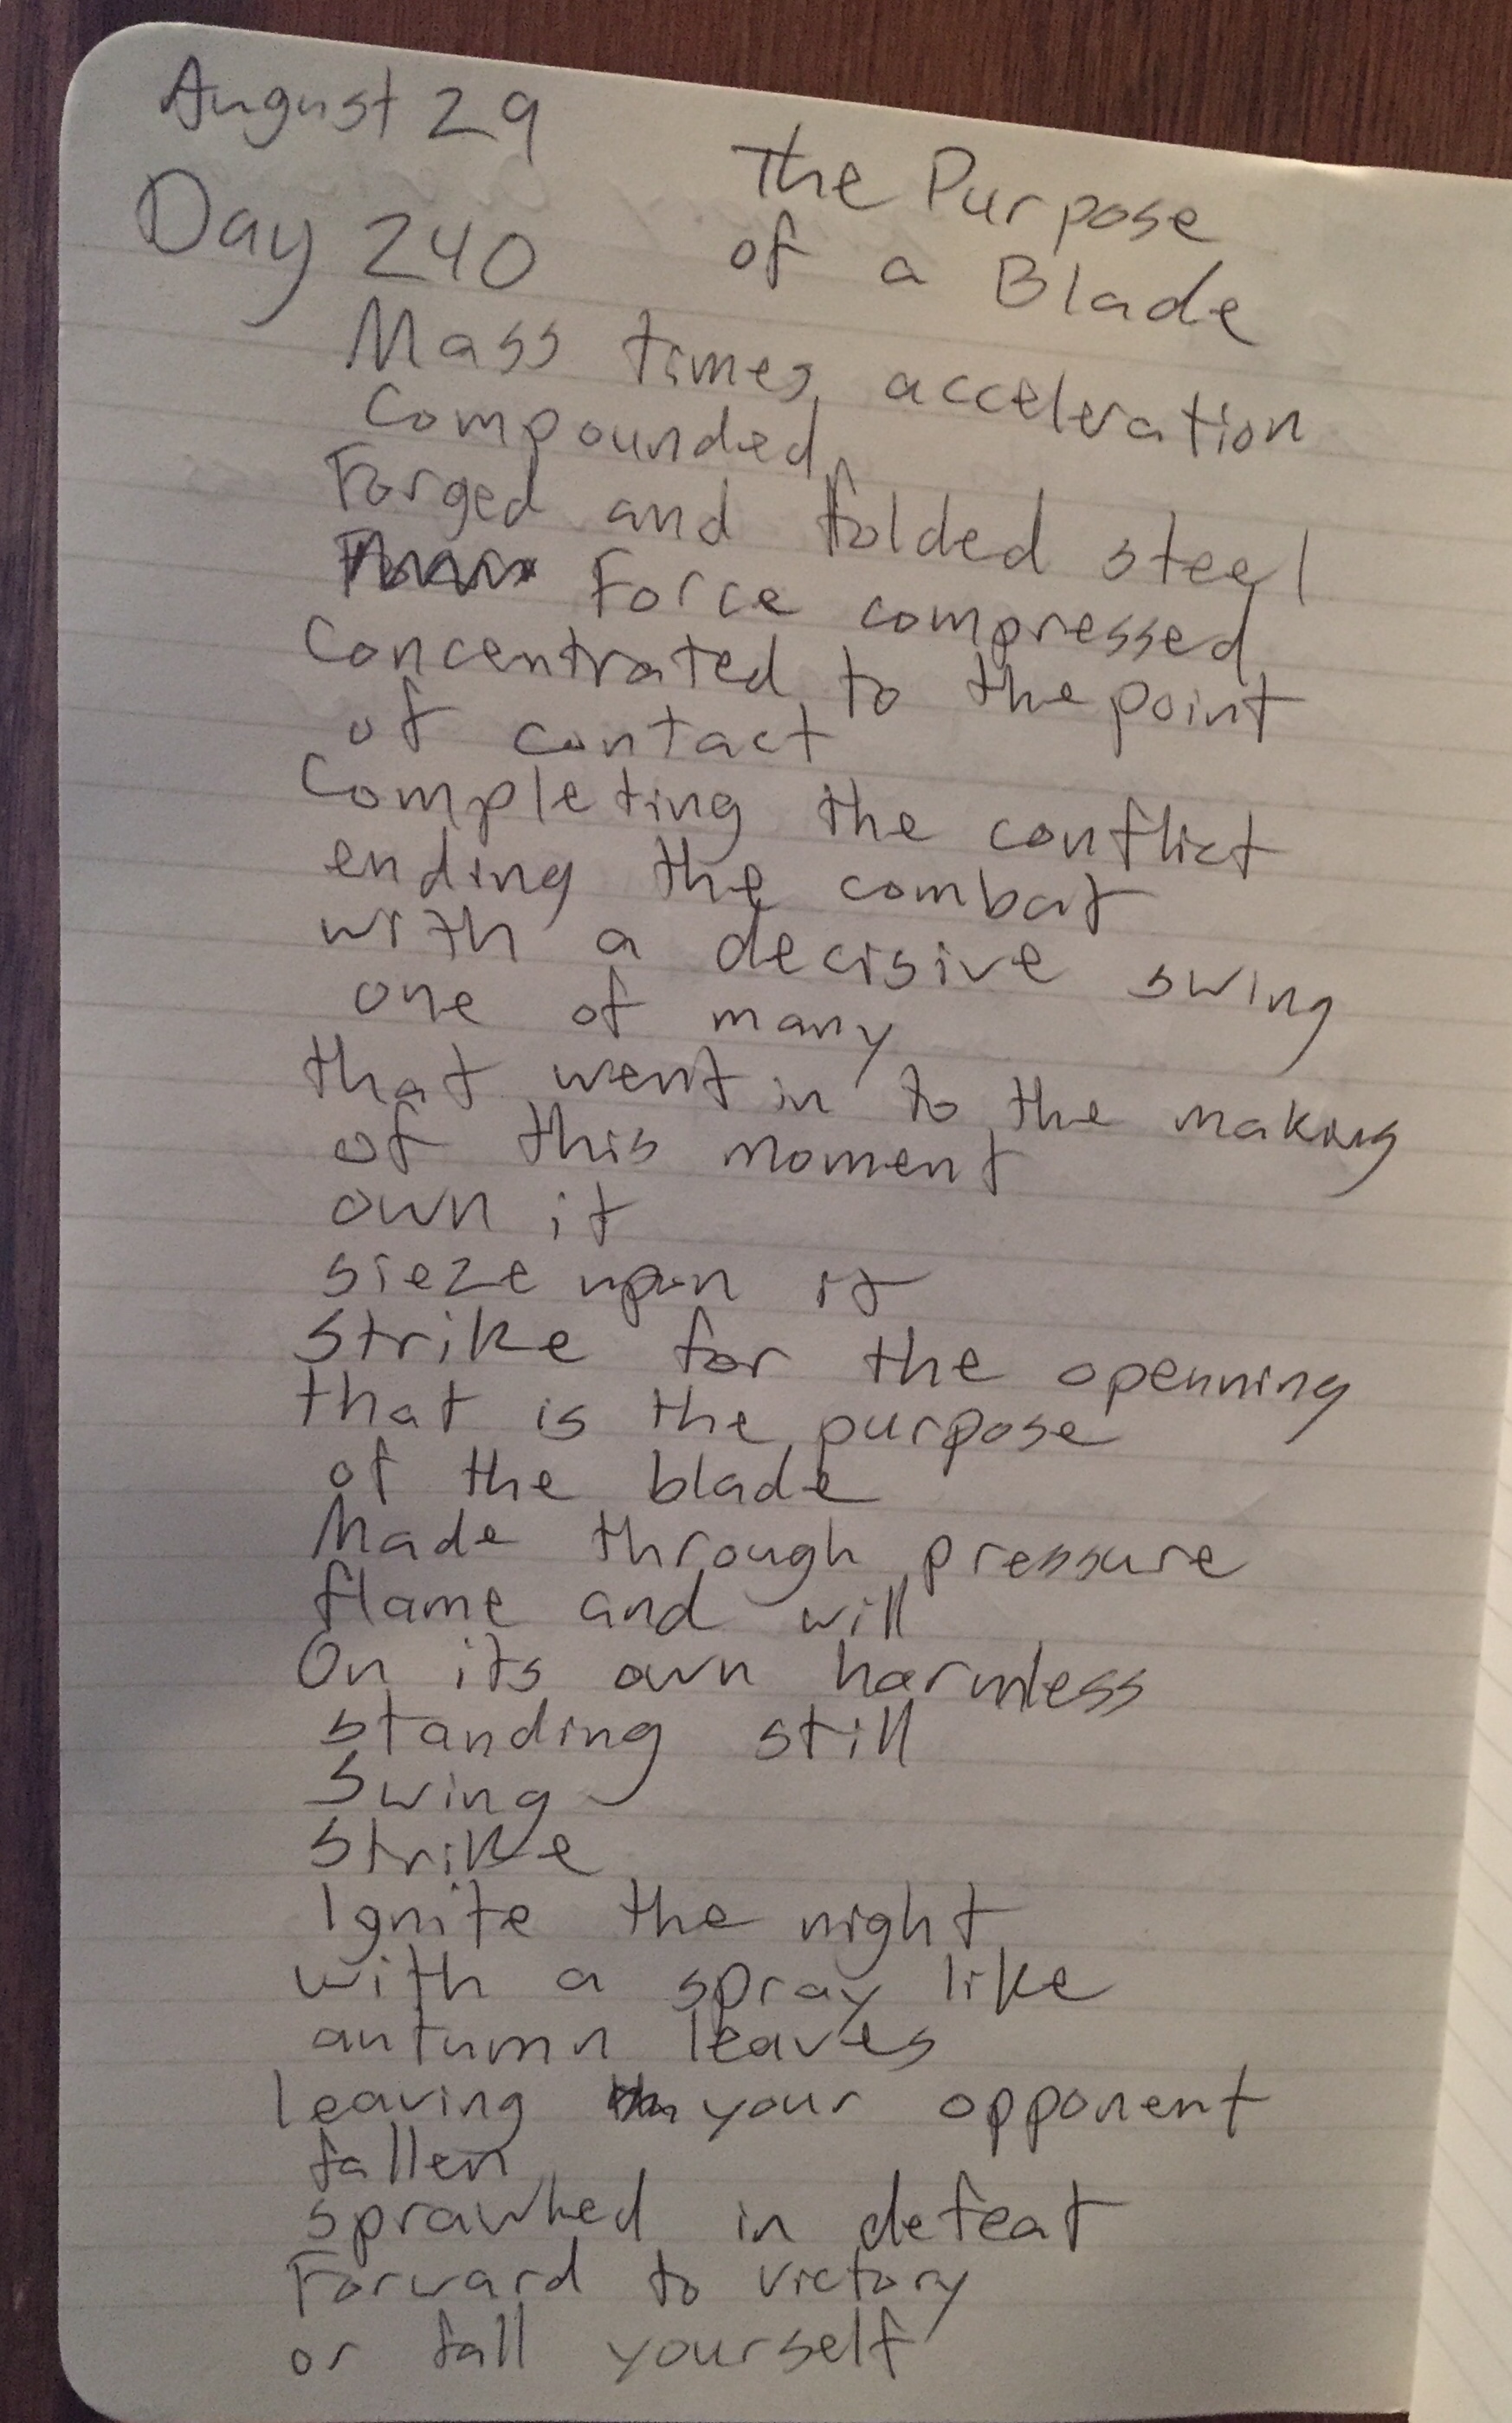 August 29
Day 240
The Purpose
of a Blade
Mass times acceleration
Compounded
Forged and folded steel
Force compressed
Concentrated to the point
of contact
Completing the conflict
ending the combat
with a decisive swing
one of many
that went in to the making
of this moment
own it
sieze upon it
Strike for the openning
that is the purpose
of the blade
Made through pressure
flame and will
On its own harmless
standing still
Swing
Strike
Ignite the night
with a spray like
autumn leaves
leaving your opponent
fallen
sprawled in defeat
Forward to victory
or fall yourself